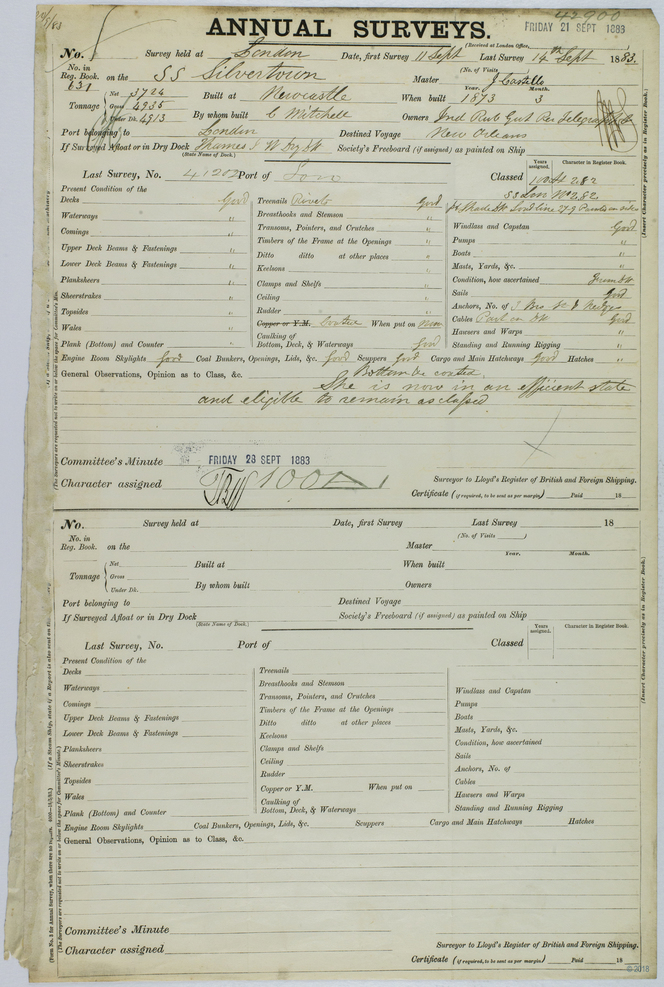 42900
ANNUAL SURVEYS.
(Received at London Office, FRIDAY 21 SEPT 1883
No. Survey held at London Date, first Survey 11 Sept Last Survey 14th Sept 1883.
(No. of Visits
No. in Reg. Book. 631 on the SS Silvertown Master J Castillo
Year. Month.
Tonnage Net 3724 Built at Newcastle When built 1873 3
Gross 4935
Under Dk. 4913 By whom built C Mitchell Owners Ind Rub Gut Per Telegraph
Port belonging to London Destined Voyage New Orleans
If Surveyed Afloat or in Dry Dock Thames I W Dry Dk Society's Freeboard (if assigned) as painted on Ship
(State Name of Dock.)
Last Survey, No. 41202 Port of Lon Classed Years assigned. 100A 2,82 Character in Register Book.
SS Lon No 2,82
Present Condition of the
Decks Good
Waterways "
Comings "
Upper Deck Beams & Fastenings "
Lower Deck Beams & Fastenings "
Planksheers "
Sheerstrakes "
Topsides "
Wales "
Plank (Bottom) and Counter "
Treenails Rivets Good
Breasthooks and Stemson "
Transoms, Pointers, and Crutches "
Timbers of the Frame at the Openings "
Ditto ditto at other places "
Keelsons "
Clamps and Shelfs "
Ceiling "
Rudder "
Copper or Y.M. Coated When put on Now
Caulking of Bottom, Deck, & Waterways Good
Windlass and Capstan Good
Pumps "
Boats "
Masts, Yards, &c. "
Condition, how ascertained from Dk
Sails Good
Anchors, No. of 3 Brs
Cables Part on Dk Good
Hawsers and Warps "
Standing and Running Rigging "
Engine Room Skylights Good Coal Bunkers, Openings, Lids, &c. Good Scuppers Good Cargo and Main Hatchways Good Hatches "
General Observations, Opinion as to Class, &c. Bottom be coated.
She is now in an efficient state
and eligible to remain as classed
Committee's Minute FRIDAY 28 SEPT 1883
Character assigned 100A
Surveyor to Lloyd's Register of British and Foreign Shipping.
Certificate (if required, to be sent as per margin) Paid 18
No. Survey held at Date, first Survey Last Survey 18
(No. of Visits )
No. in Reg. Book. on the Master
Year. Month.
Tonnage Net Built at When built
Gross
Under Dk. By whom built Owners
Port belonging to Destined Voyage
If Surveyed Afloat or in Dry Dock Society's Freeboard (if assigned) as painted on Ship
(State Name of Dock.)
Last Survey, No. Port of Classed Years assigned. Character in Register Book.
Present Condition of the
Decks
Waterways
Comings
Upper Deck Beams & Fastenings
Lower Deck Beams & Fastenings
Planksheers
Sheerstrakes
Topsides
Wales
Plank (Bottom) and Counter
Treenails
Breasthooks and Stemson
Transoms, Pointers, and Crutches
Timbers of the Frame at the Openings
Ditto ditto at other places
Keelsons
Clamps and Shelfs
Ceiling
Rudder
Copper or Y.M. When put on
Caulking of Bottom, Deck, & Waterways
Windlass and Capstan
Pumps
Boats
Masts, Yards, &c.
Condition, how ascertained
Sails
Anchors, No. of
Cables
Hawsers and Warps
Standing and Running Rigging
Engine Room Skylights Coal Bunkers, Openings, Lids, &c. Scuppers Cargo and Main Hatchways Hatches
General Observations, Opinion as to Class, &c.
Committee's Minute
Character assigned
Surveyor to Lloyd's Register of British and Foreign Shipping.
Certificate (if required, to be sent as per margin) Paid 18
(Insert Character precisely as in Register Book.)
(Insert Character precisely as in Register Book.)
(The Surveyors are requested not to write on or below the space for Committee's Minute.)
© 2018